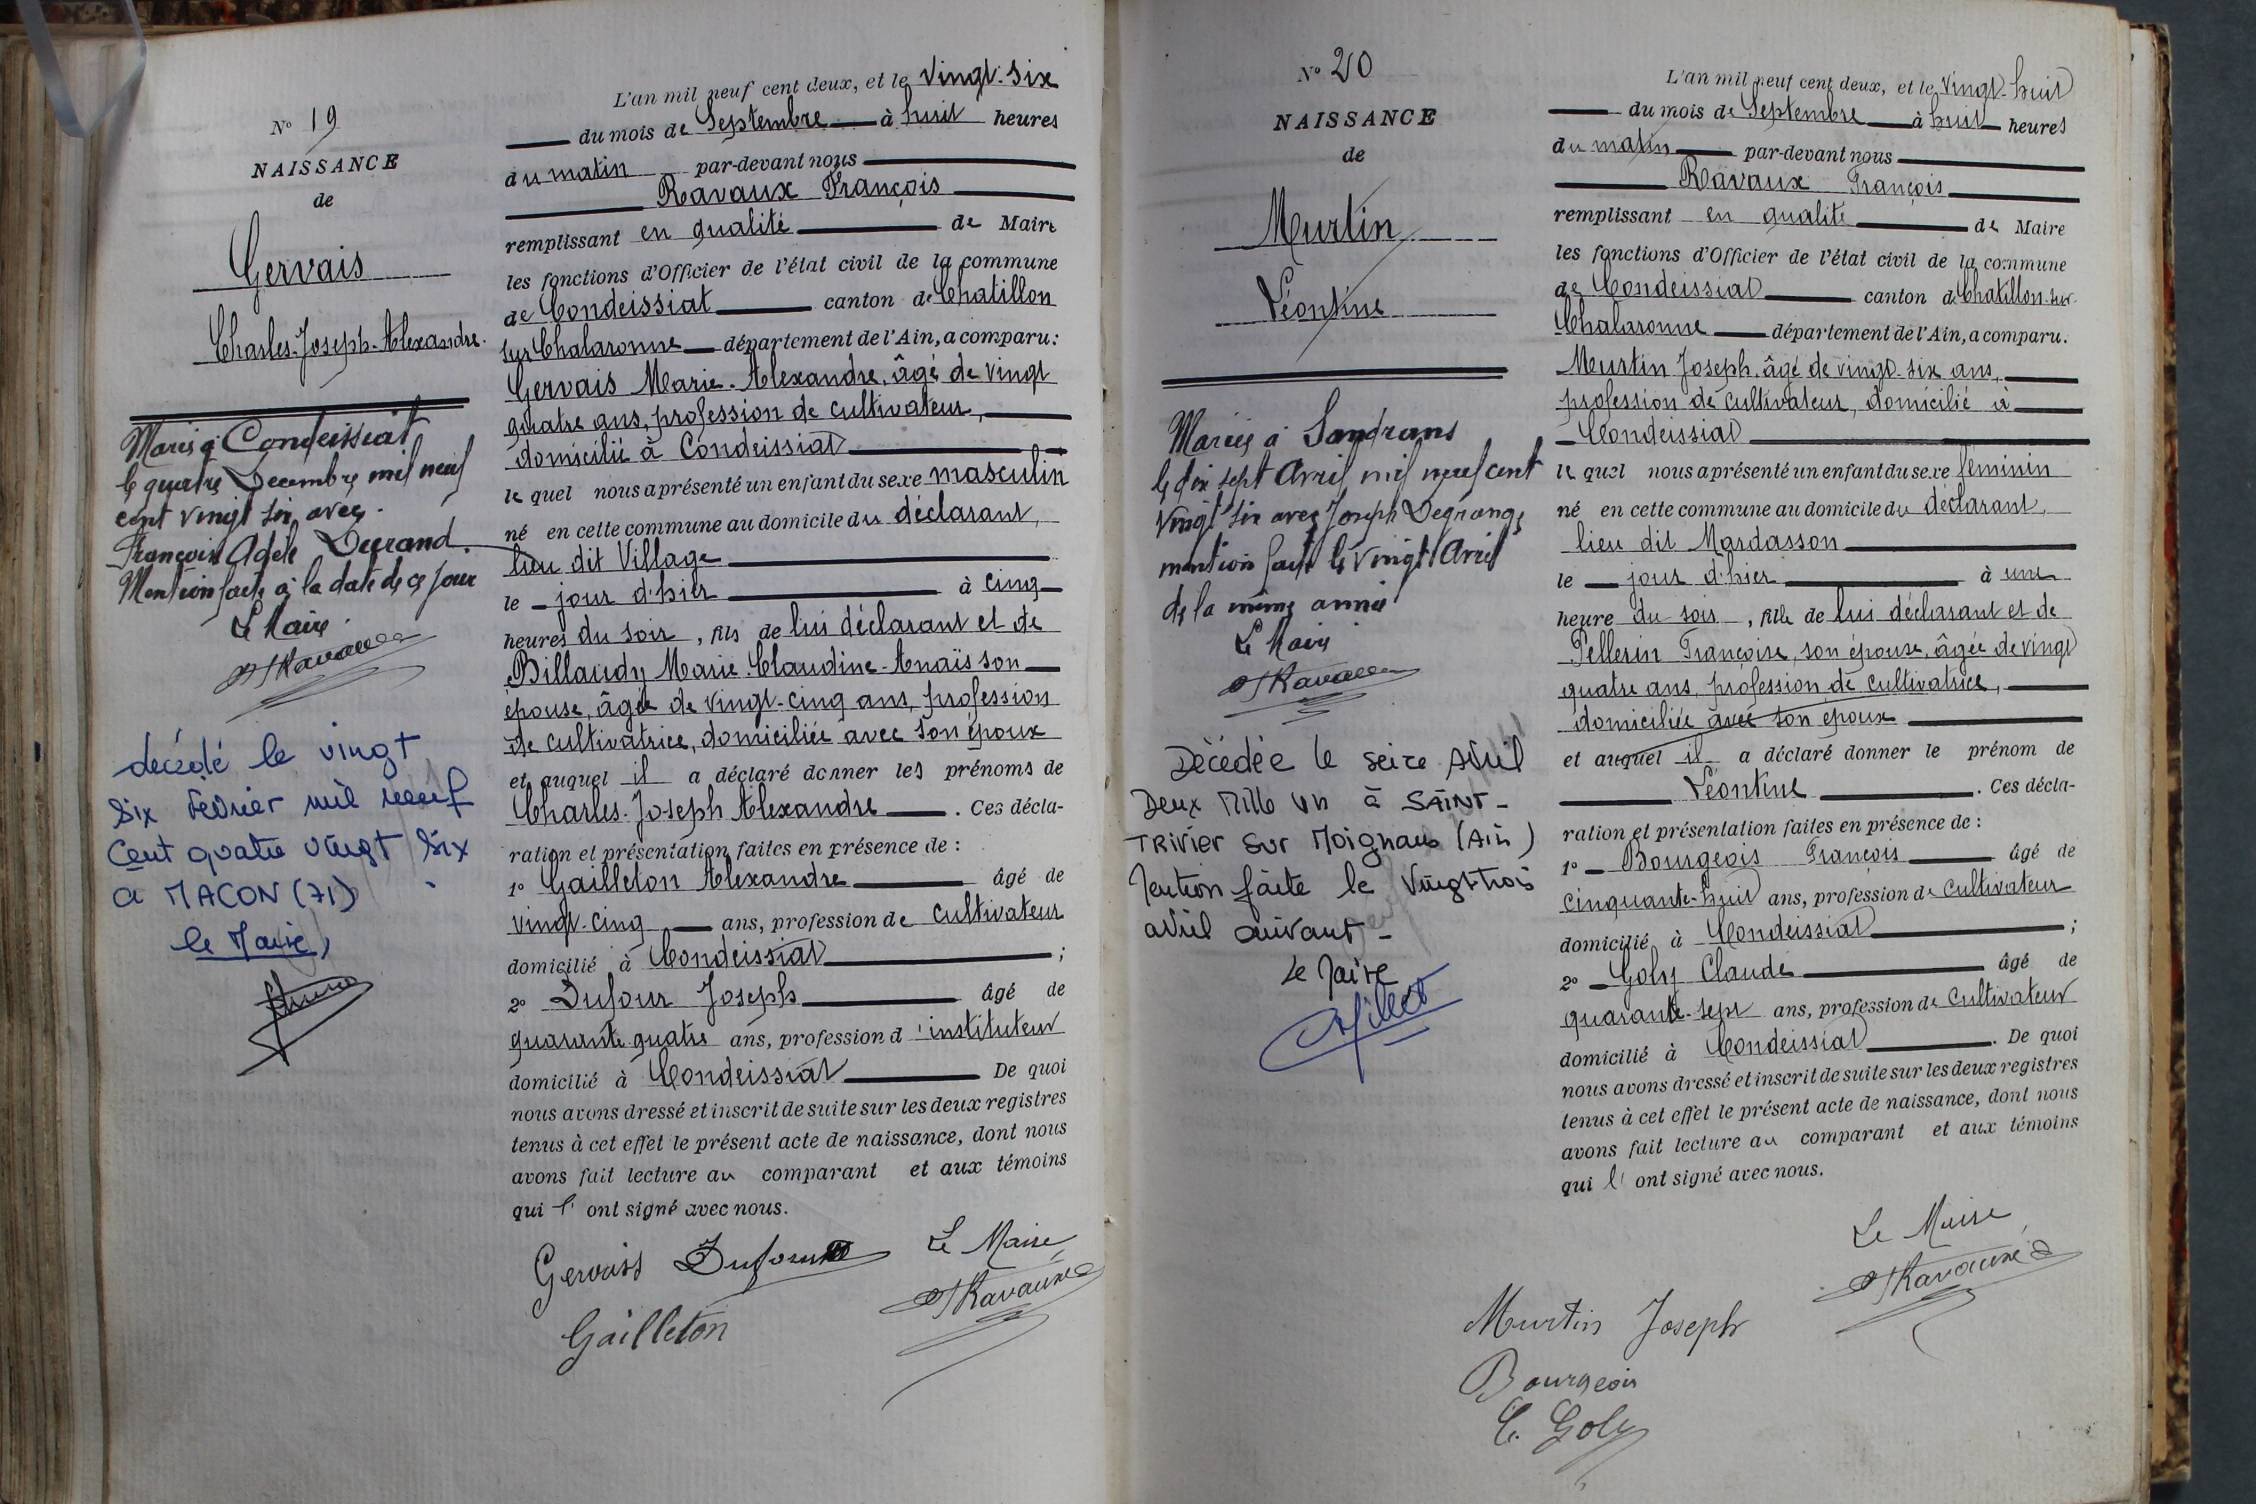 N° 19
NAISSANCE
de
Gervais
Charles-Joseph-Alexandre.
Marié à Condeissiat
le quatre Décembre mil neuf
cent vingt six avec
Françoise Adèle Durand.
Mention faite à la date de ce jour
Le Maire
FRavaux
décédé le vingt
six février mil neuf
cent quatre vingt six
à MACON (71)
le Maire,
L'an mil neuf cent deux, et le vingt-six
du mois de Septembre à huit heures
du matin par-devant nous
Ravaux François
remplissant en qualité de Maire
les fonctions d'Officier de l'état civil de la commune
de Condeissiat canton de Chatillon
sur Chalaronne département de l'Ain, a comparu:
Gervais Marie-Alexandre, âgé de vingt
quatre ans, profession de cultivateur,
domicilié à Condeissiat
le quel nous a présenté un enfant du sexe masculin
né en cette commune au domicile du déclarant,
lieu dit Village
le jour d'hier à cinq
heures du soir, fils de lui déclarant et de
Billaudy Marie-Claudine-Anaïs son
épouse, âgée de vingt-cinq ans, profession
de cultivatrice, domiciliée avec son époux
et auquel il a déclaré donner les prénoms de
Charles-Joseph Alexandre. Ces décla-
ration et présentation faites en présence de :
1° Gailleton Alexandre âgé de
vingt-cinq ans, profession de cultivateur
domicilié à Condeissiat ;
2° Dufour Joseph âgé de
quarante quatre ans, profession d'instituteur
domicilié à Condeissiat De quoi
nous avons dressé et inscrit de suite sur les deux registres
tenus à cet effet le présent acte de naissance, dont nous
avons fait lecture au comparant et aux témoins
qui l' ont signé avec nous.
Gervais Dufour Le Maire
FRavaux
Gailleton
N° 20
NAISSANCE
de
Murtin
Léontine
Mariée à Sandrans
le dix sept Avril mil neuf cent
vingt six avec Joseph Degrange
mention faite le vingt Avril
de la même année
Le Maire
FRavaux
Décédée le seize Avril
Deux Mille un à SAINT-
TRIVIER sur Moignans (Ain)
Mention faite le vingt trois
avril suivant -
Le Maire
L'an mil neuf cent deux, et le vingt-huit
du mois de Septembre à huit heures
du matin par-devant nous
Ravaux François
remplissant en qualité de Maire
les fonctions d'Officier de l'état civil de la commune
de Condeissiat canton de Chatillon-sur-
Chalaronne département de l'Ain, a comparu.
Murtin Joseph, âgé de vingt-six ans,
profession de cultivateur, domicilié à
Condeissiat
le quel nous a présenté un enfant du sexe féminin
né en cette commune au domicile du déclarant,
lieu dit Mardasson
le jour d'hier à une
heure du soir, fille de lui déclarant et de
Pellerin Françoise, son épouse, âgée de vingt
quatre ans, profession de cultivatrice,
domiciliée avec son époux
et auquel il a déclaré donner le prénom de
Léontine. Ces décla-
ration et présentation faites en présence de :
1° Bourgeois François âgé de
cinquante-huit ans, profession de cultivateur
domicilié à Condeissiat ;
2° Goly Claude âgé de
quarante-sept ans, profession de cultivateur
domicilié à Condeissiat. De quoi
nous avons dressé et inscrit de suite sur les deux registres
tenus à cet effet le présent acte de naissance, dont nous
avons fait lecture au comparant et aux témoins
qui l' ont signé avec nous.
Le Maire
FRavaux
Murtin Joseph
Bourgeois
C. Goly